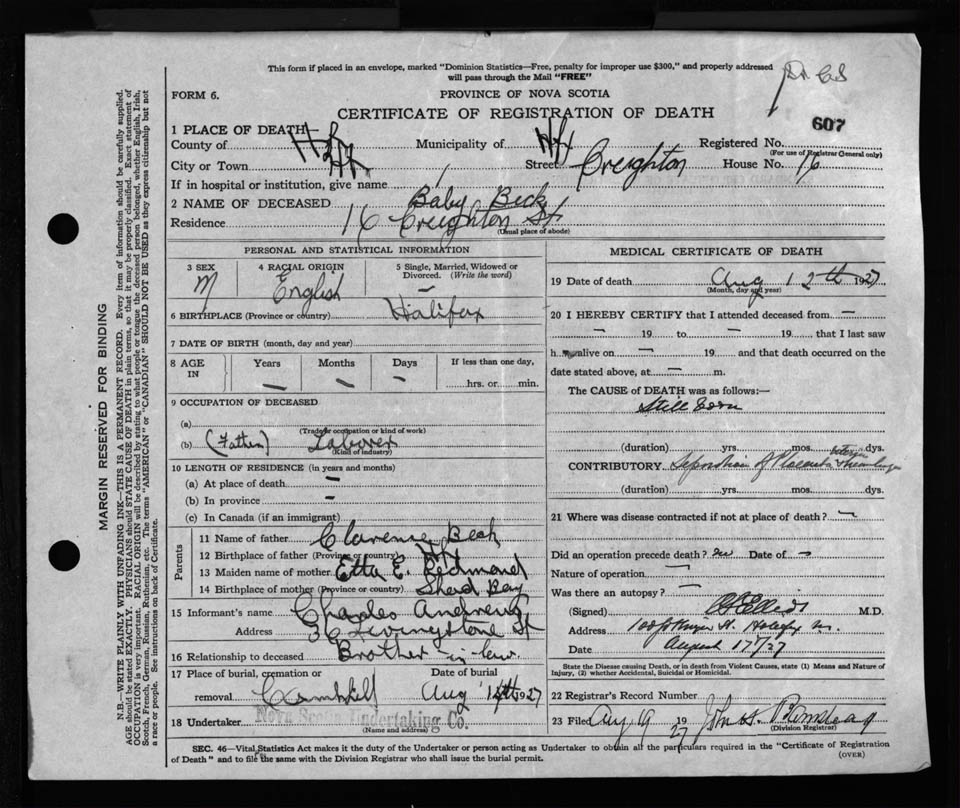 This form if placed in an envelope, marked "Dominion Statistics—Free, penalty for improper use $300," and properly addressed
will pass through the Mail "FREE"
FORM 6.
PROVINCE OF NOVA SCOTIA
CERTIFICATE OF REGISTRATION OF DEATH
607
1 PLACE OF DEATH—
County of Hfx Municipality of Hfx Registered No.
(For use of Registrar General only)
City or Town Street Creighton House No. 16
If in hospital or institution, give name
2 NAME OF DECEASED Baby Beck
Residence 16 Creighton St.
(Usual place of abode)
PERSONAL AND STATISTICAL INFORMATION
3 SEX M
4 RACIAL ORIGIN English
5 Single, Married, Widowed or Divorced. (Write the word) —
6 BIRTHPLACE (Province or country) Halifax
7 DATE OF BIRTH (month, day and year)
8 AGE IN Years — Months — Days — If less than one day, hrs. or min.
9 OCCUPATION OF DECEASED
(a)
(Trade or occupation or kind of work)
(b) (Father) Laborer
(Kind of industry)
10 LENGTH OF RESIDENCE (in years and months)
(a) At place of death —
(b) In province —
(c) In Canada (if an immigrant)
Parents
11 Name of father Clarence Beck
12 Birthplace of father (Province or country) Hfx
13 Maiden name of mother Etta E. Redmond
14 Birthplace of mother (Province or country) Shad Bay
15 Informant's name Charles Andrews
Address 36 Livingstone St
16 Relationship to deceased Brother-in-law
17 Place of burial, cremation or removal Date of burial
Camphill Aug 14th 1927
18 Undertaker Nova Scotia Undertaking Co.
(Name and address)
MEDICAL CERTIFICATE OF DEATH
19 Date of death Aug 12th 1927
(Month, day and year)
20 I HEREBY CERTIFY that I attended deceased from —
— 19 to — 19 that I last saw
h alive on — 19 and that death occurred on the
date stated above, at — m.
The CAUSE of DEATH was as follows:—
Still born
(duration) yrs. mos. dys.
CONTRIBUTORY Separation of Placenta
(duration) yrs. mos. dys.
21 Where was disease contracted if not at place of death? —
Did an operation precede death? Date of —
Nature of operation —
Was there an autopsy? —
(Signed) M.D.
Address Halifax
Date August 17/27
State the Disease causing Death, or in death from Violent Causes, state (1) Means and Nature of
Injury, (2) whether Accidental, Suicidal or Homicidal.
22 Registrar's Record Number
23 Filed Aug 19 1927
(Division Registrar)
SEC. 46—Vital Statistics Act makes it the duty of the Undertaker or person acting as Undertaker to obtain all the particulars required in the "Certificate of Registration
of Death" and to file the same with the Division Registrar who shall issue the burial permit.
(OVER)
MARGIN RESERVED FOR BINDING
N.B.—WRITE PLAINLY WITH UNFADING INK—THIS IS A PERMANENT RECORD. Every item of information should be carefully supplied.
AGE should be stated EXACTLY. PHYSICIANS should STATE CAUSE OF DEATH in plain terms, so that it may be properly classified. Exact statement of
OCCUPATION is very important. RACIAL ORIGIN will be described by stating to what people or tongue the deceased person belonged, whether English, Irish,
Scotch, French, German, Russian, Ruthenian, etc. The terms "AMERICAN" or "CANADIAN" SHOULD NOT BE USED as they express citizenship but not
a race or people. See instructions on back of Certificate.